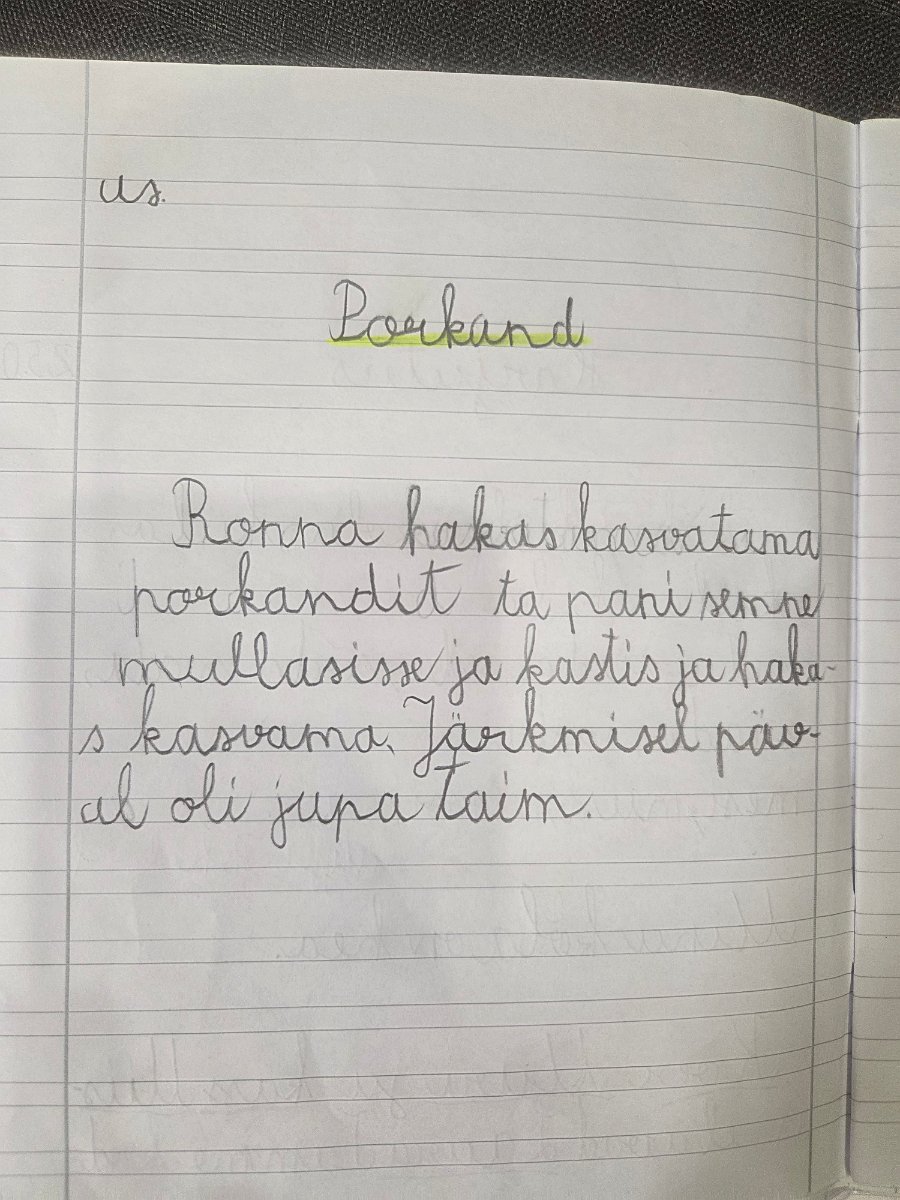 us.
Porkand
Ronna hakas kasvatama
porkandit ta pani semne
mullasisse ja kastis ja haka-
s kasvama. Järkmisel päv-
al oli jupa taim.